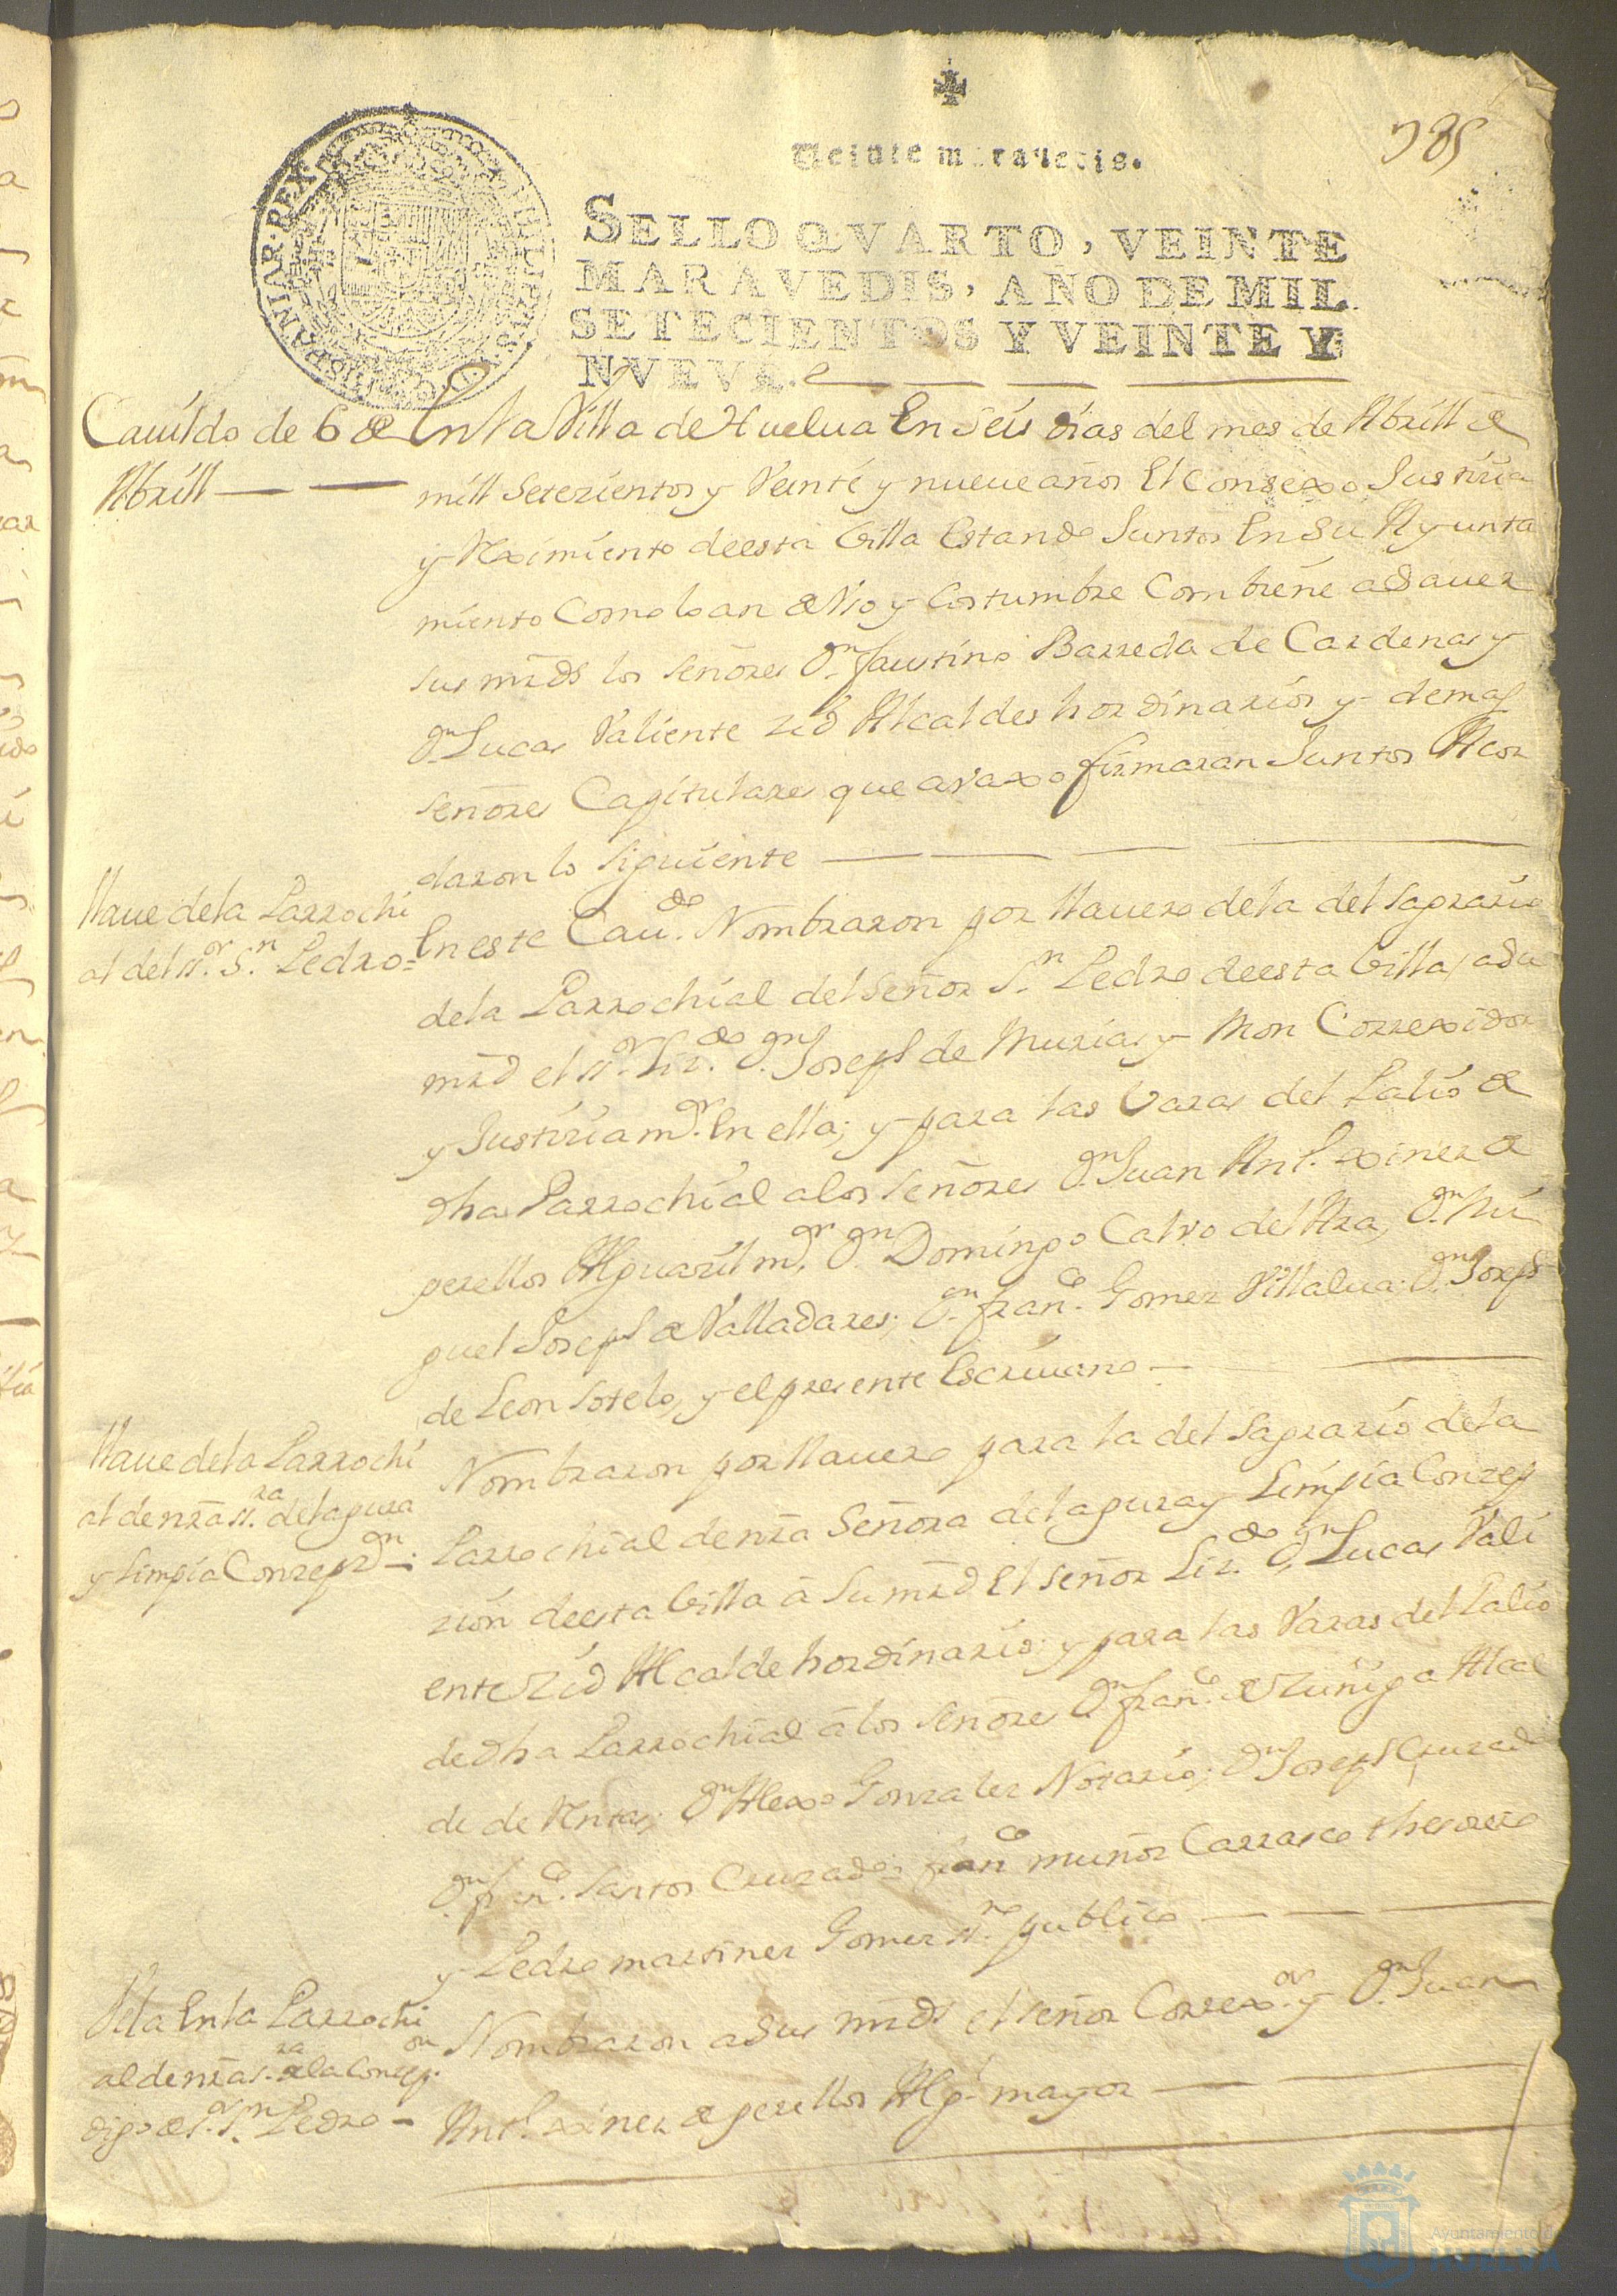 Veinte maravedis.
385
SELLO QVARTO, VEINTE
MARAVEDIS, AÑO DE MIL
SETECIENTOS Y VEINTE Y
NVEVE.
HISPANIAR·REX
Cauildo de 6 de
Abrill
En la Villa de Huelua En Seis dias del mes de Abrill de
mill Setezientos y Veinte y nueue años El Consexo Justizia
y Reximiento deesta Villa Estando Juntos En Su Ayunta
miento Como lo an de Vso y Costumbre Combiene a Sauer
sus mrds los señores Dn faustino Barreda de Cardenas y
Dn Lucas Valiente zid Alcaldes hordinarios y demas
señores Capitulares que avaxo firmaran Juntos Acor
daron lo siguiente
llaue dela Parrochi
al del sr. Sn. Pedro=
En este Caudo. Nombraron por llauero dela del Sagrario
dela Parrochial del Señor Sn. Pedro deesta Villa, a Su
mrd el sr. Lizdo. Dn. Joseph de Murias y Mon Correxidor
y Justizia mor. En ella; y para las Varas del Palio de
dha Parrochial alos señores Dn. Juan Antt. ximez de
perellos Alguazil mor, Dn. Domingo Calvo del Ara, Dn. Mi
guel Joseph de Valladares; Dn. franco. Gomez Villalua; Dn. Joseph
de Leon Sotelo, y el presente Escriuano
llaue dela Parrochi
al de nra sra. dela pura
y limpia Conzepzon
Nombraron por llauero para la del Sagrario dela
Parrochial de nra Señora dela pura y Limpia Conzep
zion deesta Villa â Su mrd El señor Lizdo. Dn Lucas Vali
ente Zid Alcalde hordinario; y para las Varas del Palio
de dha Parrochial â los señores Dn. franco. de Zuñiga Alcal
de de Rentas; Dn Alexo Gonzalez Notario; Dn Joseph Cruzado
Dn. franco. Santos Cruzado; franco muñoz Carrasco thesorero
y Pedro martinez Gomez sno. publico
Vela En la Parrochi
al de nra sra. de la Conzepon.
digo de sr. Sn. Pedro
Nombraron a Sus mrds el señor Correxor. y Dn. Juan
Antt. ximez de perellos Algl mayor
Ayuntamiento de
HUELVA